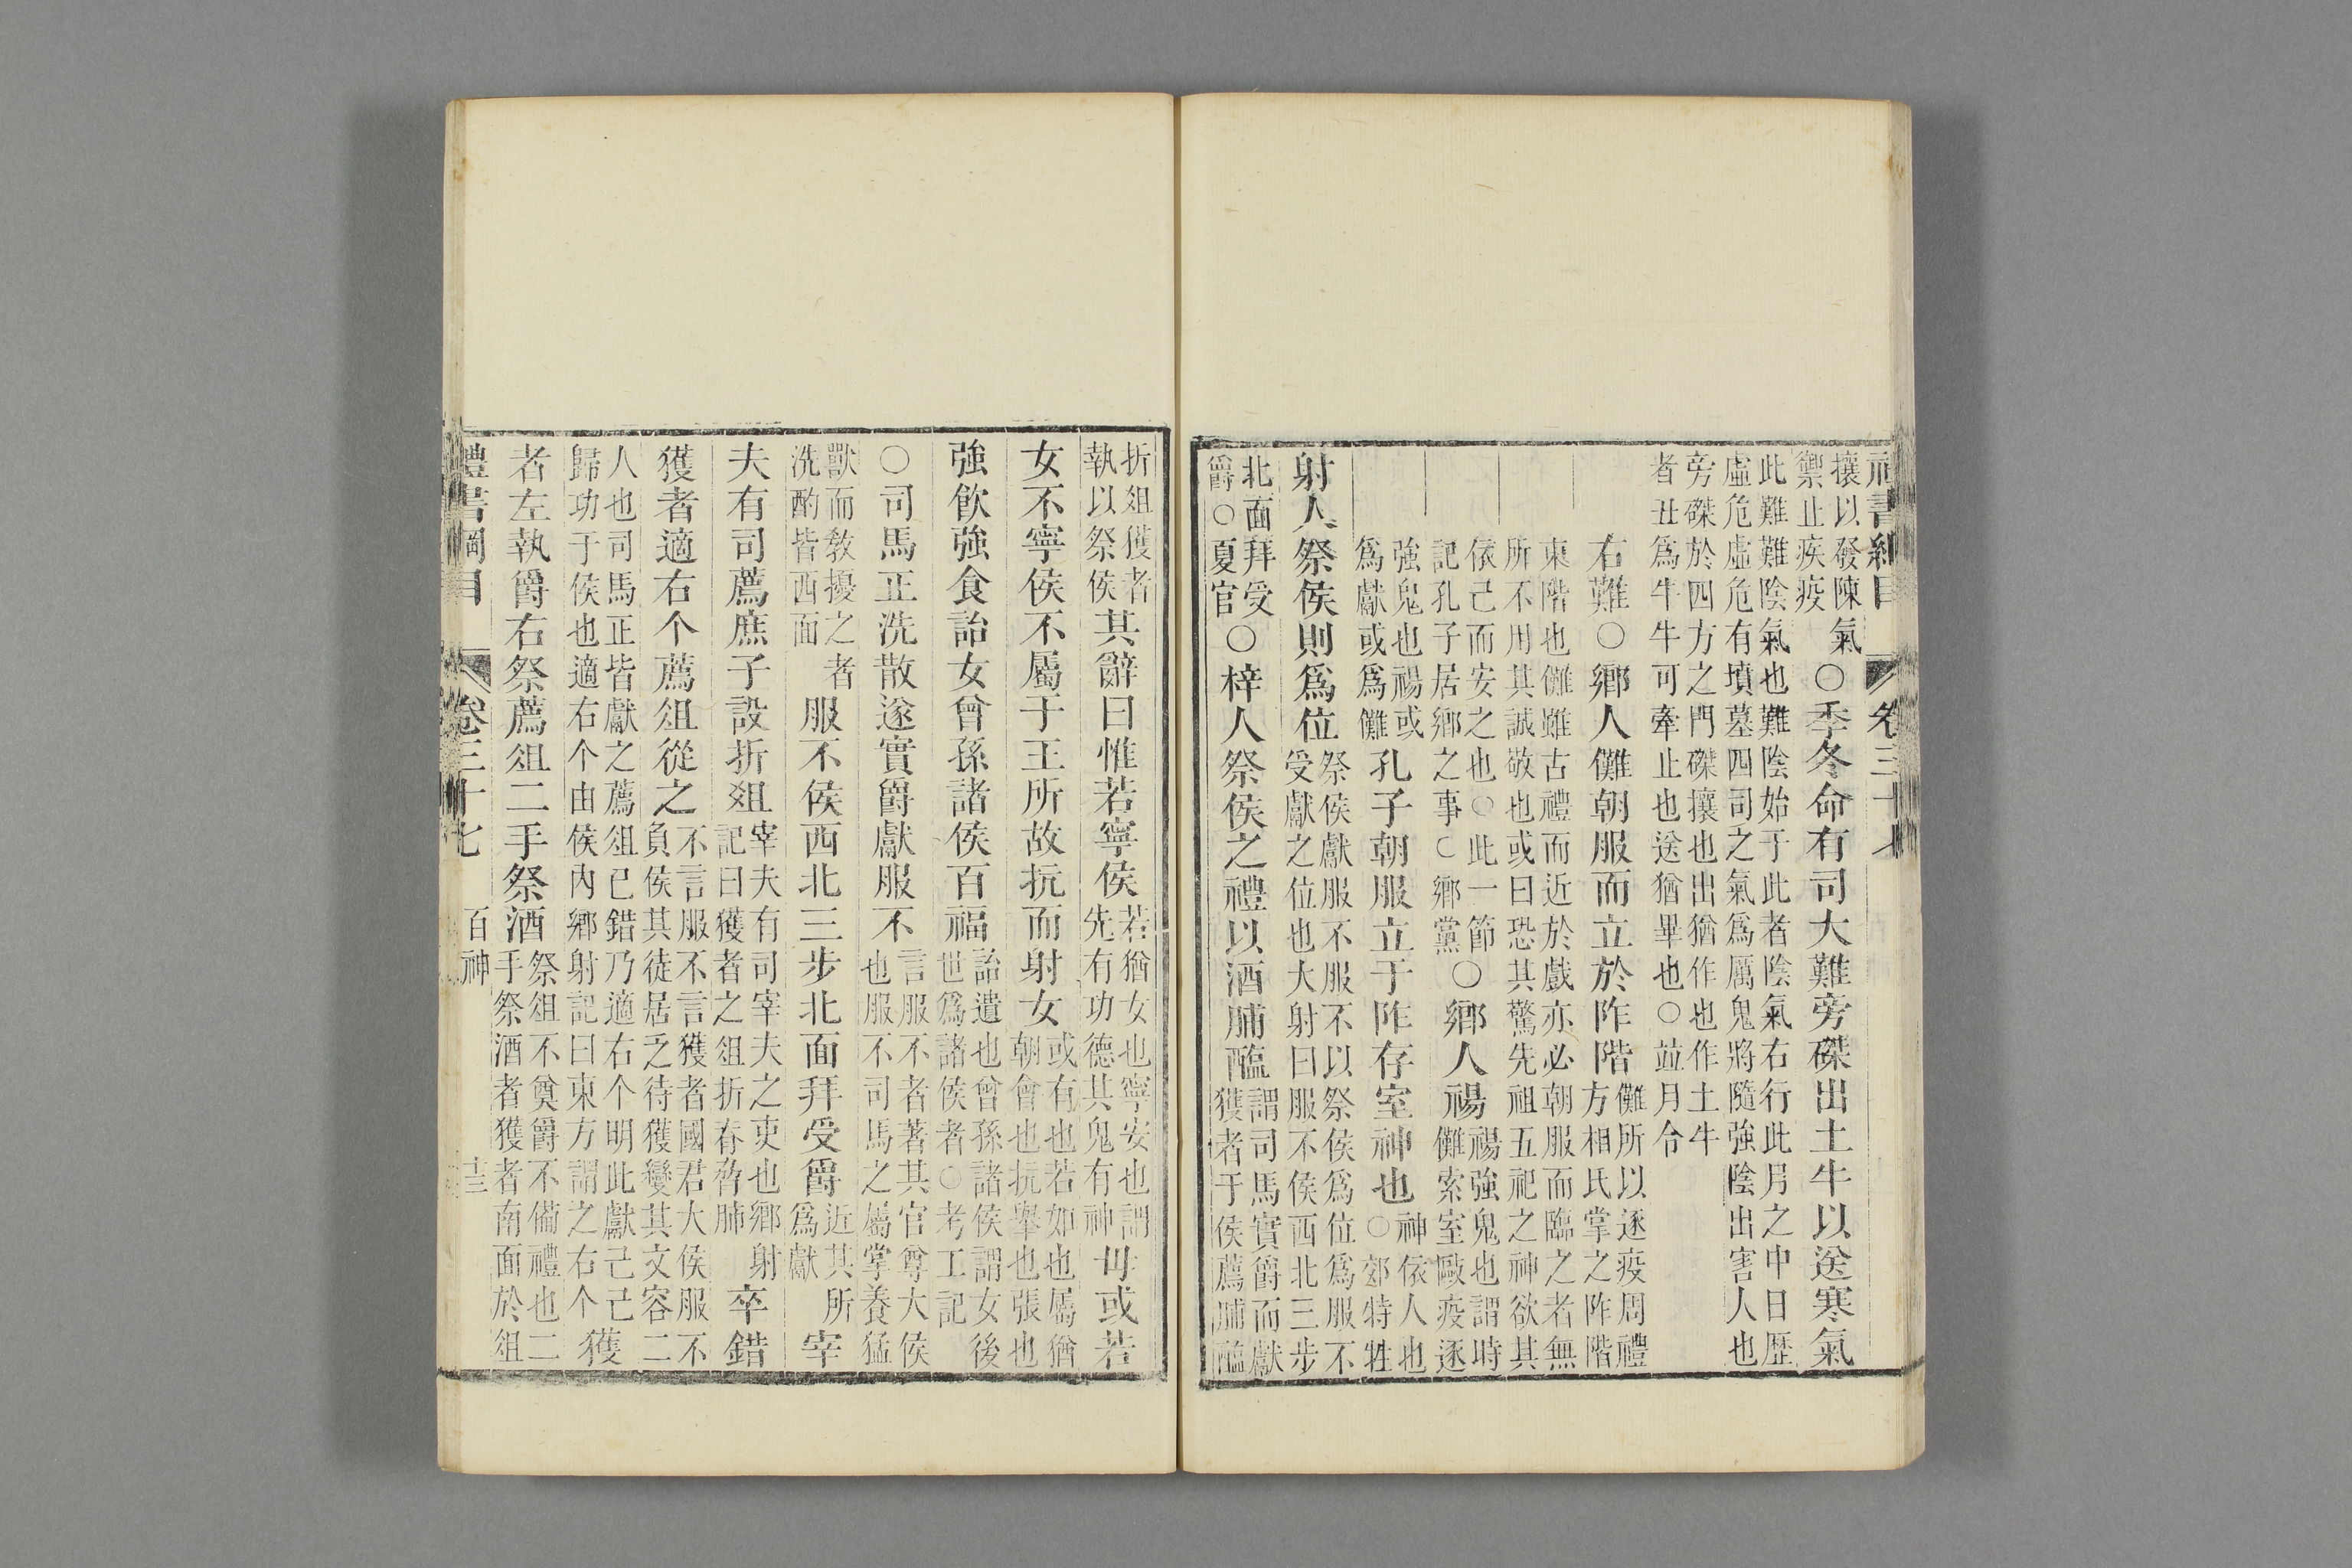 禮書綱目 卷三十七
攘以發陳氣
禦止疾疫
○季冬命有司大難旁磔出土牛以送寒氣
此難難陰氣也難陰始于此者陰氣右行此月之中日歷
虛危虛危有墳墓四司之氣爲厲鬼將隨強陰出害人也
旁磔於四方之門磔攘也出猶作也作土牛
者丑爲牛牛可牽止也送猶畢也○並月令
右難○鄉人儺朝服而立於阼階
儺所以逐疫周禮
方相氏掌之阼階
東階也儺雖古禮而近於戲亦必朝服而臨之者無
所不用其誠敬也或曰恐其驚先祖五祀之神欲其
依己而安之也○此一節
記孔子居鄉之事○鄉黨
○鄉人禓
禓強鬼也謂時
儺索室毆疫逐
強鬼也禓或
爲獻或爲儺
孔子朝服立于阼存室神也
神依人也
○郊特牲
射人祭侯則爲位
祭侯獻服不服不以祭侯爲位爲服不
受獻之位也大射曰服不侯西北三步
北面拜受
爵○夏官
○梓人祭侯之禮以酒脯醢
謂司馬實爵而獻
獲者于侯薦脯醢
折俎獲者
執以祭侯
其辭曰惟若寧侯
若猶女也寧安也謂
先有功德其鬼有神
毋或若
女不寧侯不屬于王所故抗而射女
或有也若如也屬猶
朝會也抗舉也張也
強飲強食詒女曾孫諸侯百福
詒遺也曾孫諸侯謂女後
世爲諸侯者○考工記
○司馬正洗散遂實爵獻服不
言服不者著其官尊大侯
也服不司馬之屬掌養猛
獸而敎擾之者
洗酌皆西面
服不侯西北三步北面拜受爵
近其所
爲獻
宰
夫有司薦庶子設折俎
宰夫有司宰夫之吏也鄉射
記曰獲者之俎折脊脅肺
卒錯
獲者適右个薦俎從之
不言服不言獲者國君大侯服不
負侯其徒居乏待獲變其文容二
人也司馬正皆獻之薦俎已錯乃適右个明此獻己己
歸功于侯也適右个由侯內鄉射記曰東方謂之右个
獲
者左執爵右祭薦俎二手祭酒
祭俎不奠爵不備禮也二
手祭酒者獲者南面於俎
禮書綱目 卷三十七 百神 十三